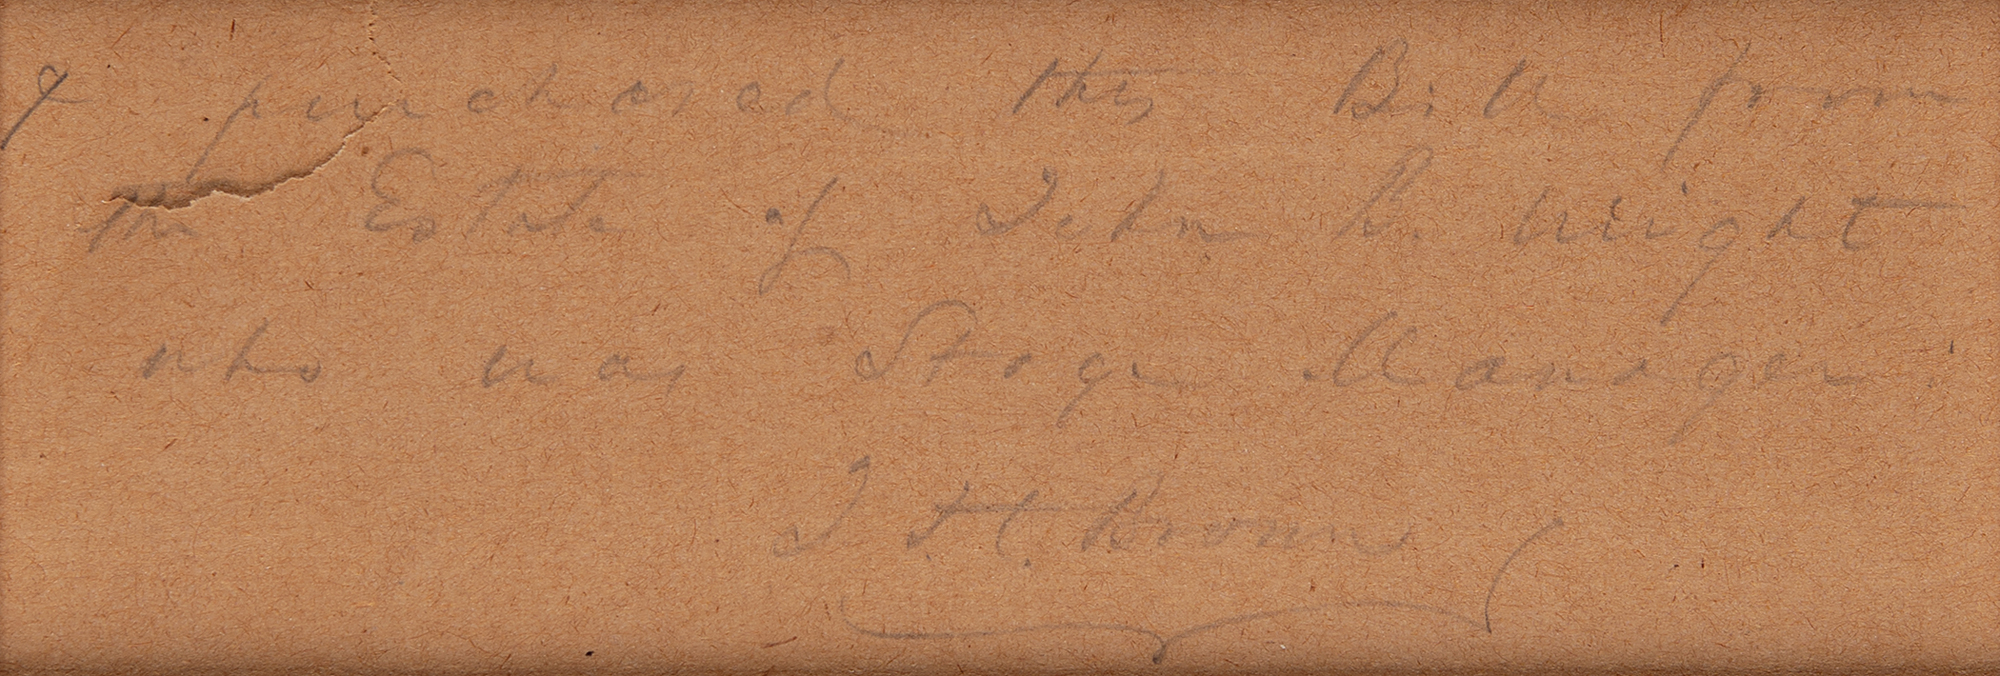 I purchased this Bill from
the Estate of John B. Wright
who was Stage Manager.
J. H. Brown